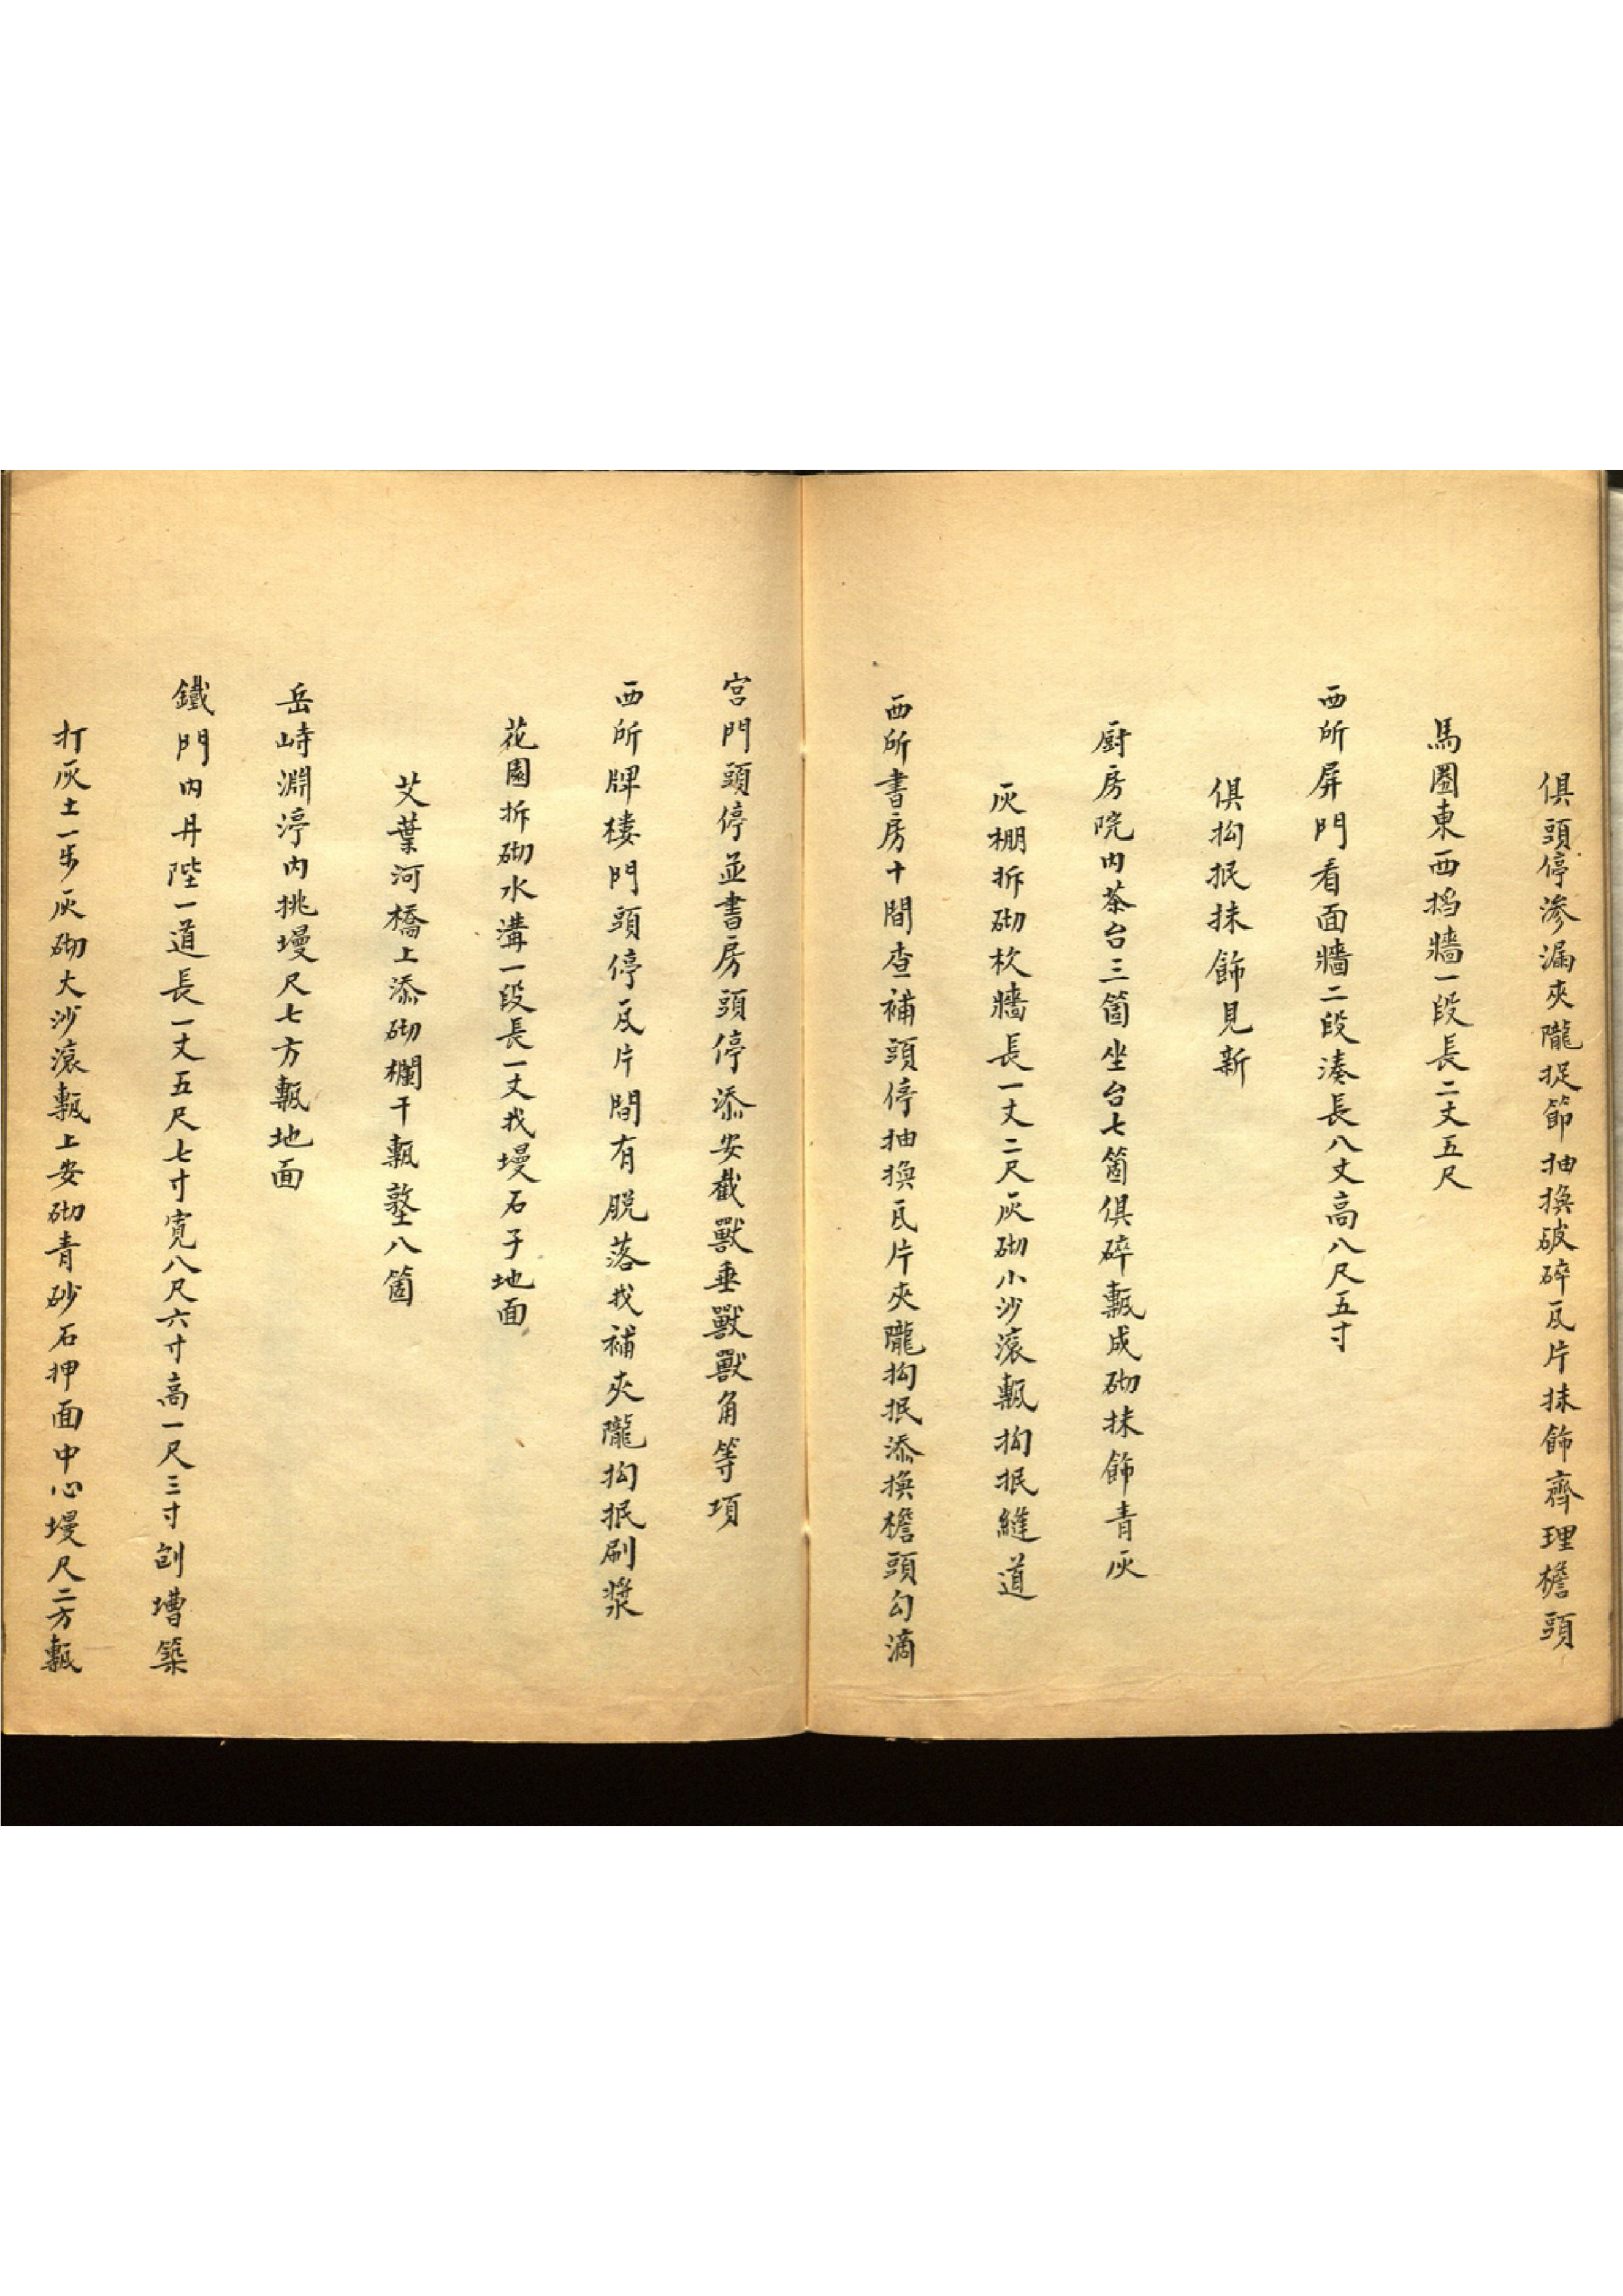 俱頭停滲漏夾隴捉節抽換破碎瓦片抹飾齊理檐頭
馬圈東西擋牆一段長二丈五尺
西所屏門看面牆二段湊長八丈高八尺五寸
俱抅抿抹飾見新
厨房院內茶台三箇坐台七箇俱碎甎成砌抹飾青灰
灰棚拆砌杴牆長一丈二尺灰砌小沙滚甎抅抿縫道
西所書房十間查補頭停抽換瓦片夾隴抅抿添換檐頭勾滴
宮門頭停並書房頭停添安截獸垂獸獸角等項
西所牌樓門頭停瓦片間有脱落找補夾隴抅抿刷漿
花園拆砌水溝一段長一丈找墁石子地面
艾葉河橋上添砌欄干甎墪八箇
岳峙淵渟內挑墁尺七方甎地面
鐵門內丹陛一道長一丈五尺七寸寬八尺六寸高一尺三寸刨壋築
打灰土一步灰砌大沙滚甎上安砌青砂石押面中心墁尺二方甎